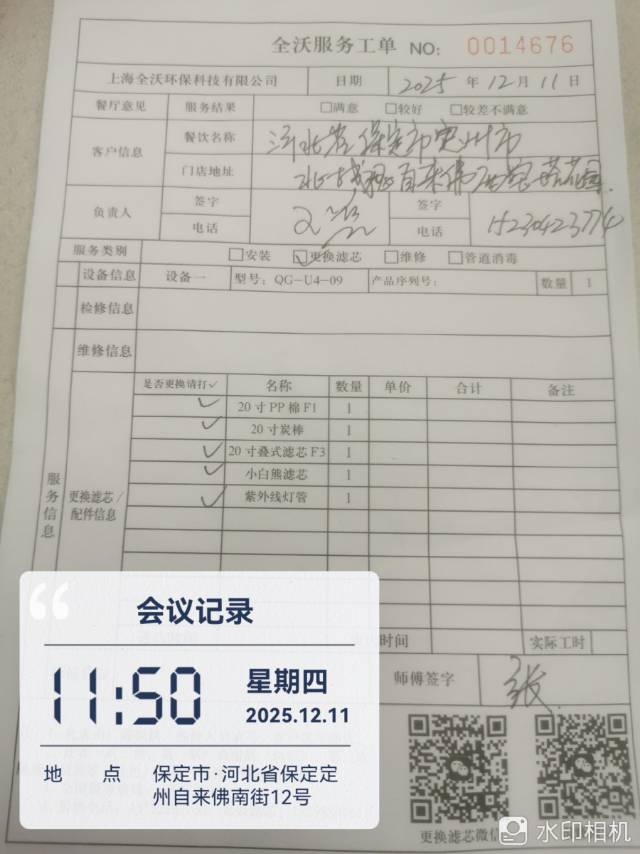 全沃服务工单 NO: 0014676
上海全沃环保科技有限公司 日期 2025 年 12 月 11 日
餐厅意见 服务结果 □满意 □较好 □较差不满意
客户信息 餐饮名称 河北省保定市定州市
门店地址
负责人 签字 签字
电话 电话 15230423774
服务类别 □安装 ☑更换滤芯 □维修 □管道消毒
设备信息 设备一 型号: QG-U4-09 产品序列号: 数量 1
检修信息
维修信息
服务信息
更换滤芯/配件信息
是否更换请打✓ 名称 数量 单价 合计 备注
✓ 20寸PP棉F1 1
✓ 20寸炭棒 1
✓ 20寸叠式滤芯F3 1
✓ 小白熊滤芯 1
✓ 紫外线灯管 1
时间 实际工时
师傅签字 张
更换滤芯微信
“
会议记录
11:50 星期四
2025.12.11
地 点 保定市·河北省保定定
州自来佛南街12号
水印相机